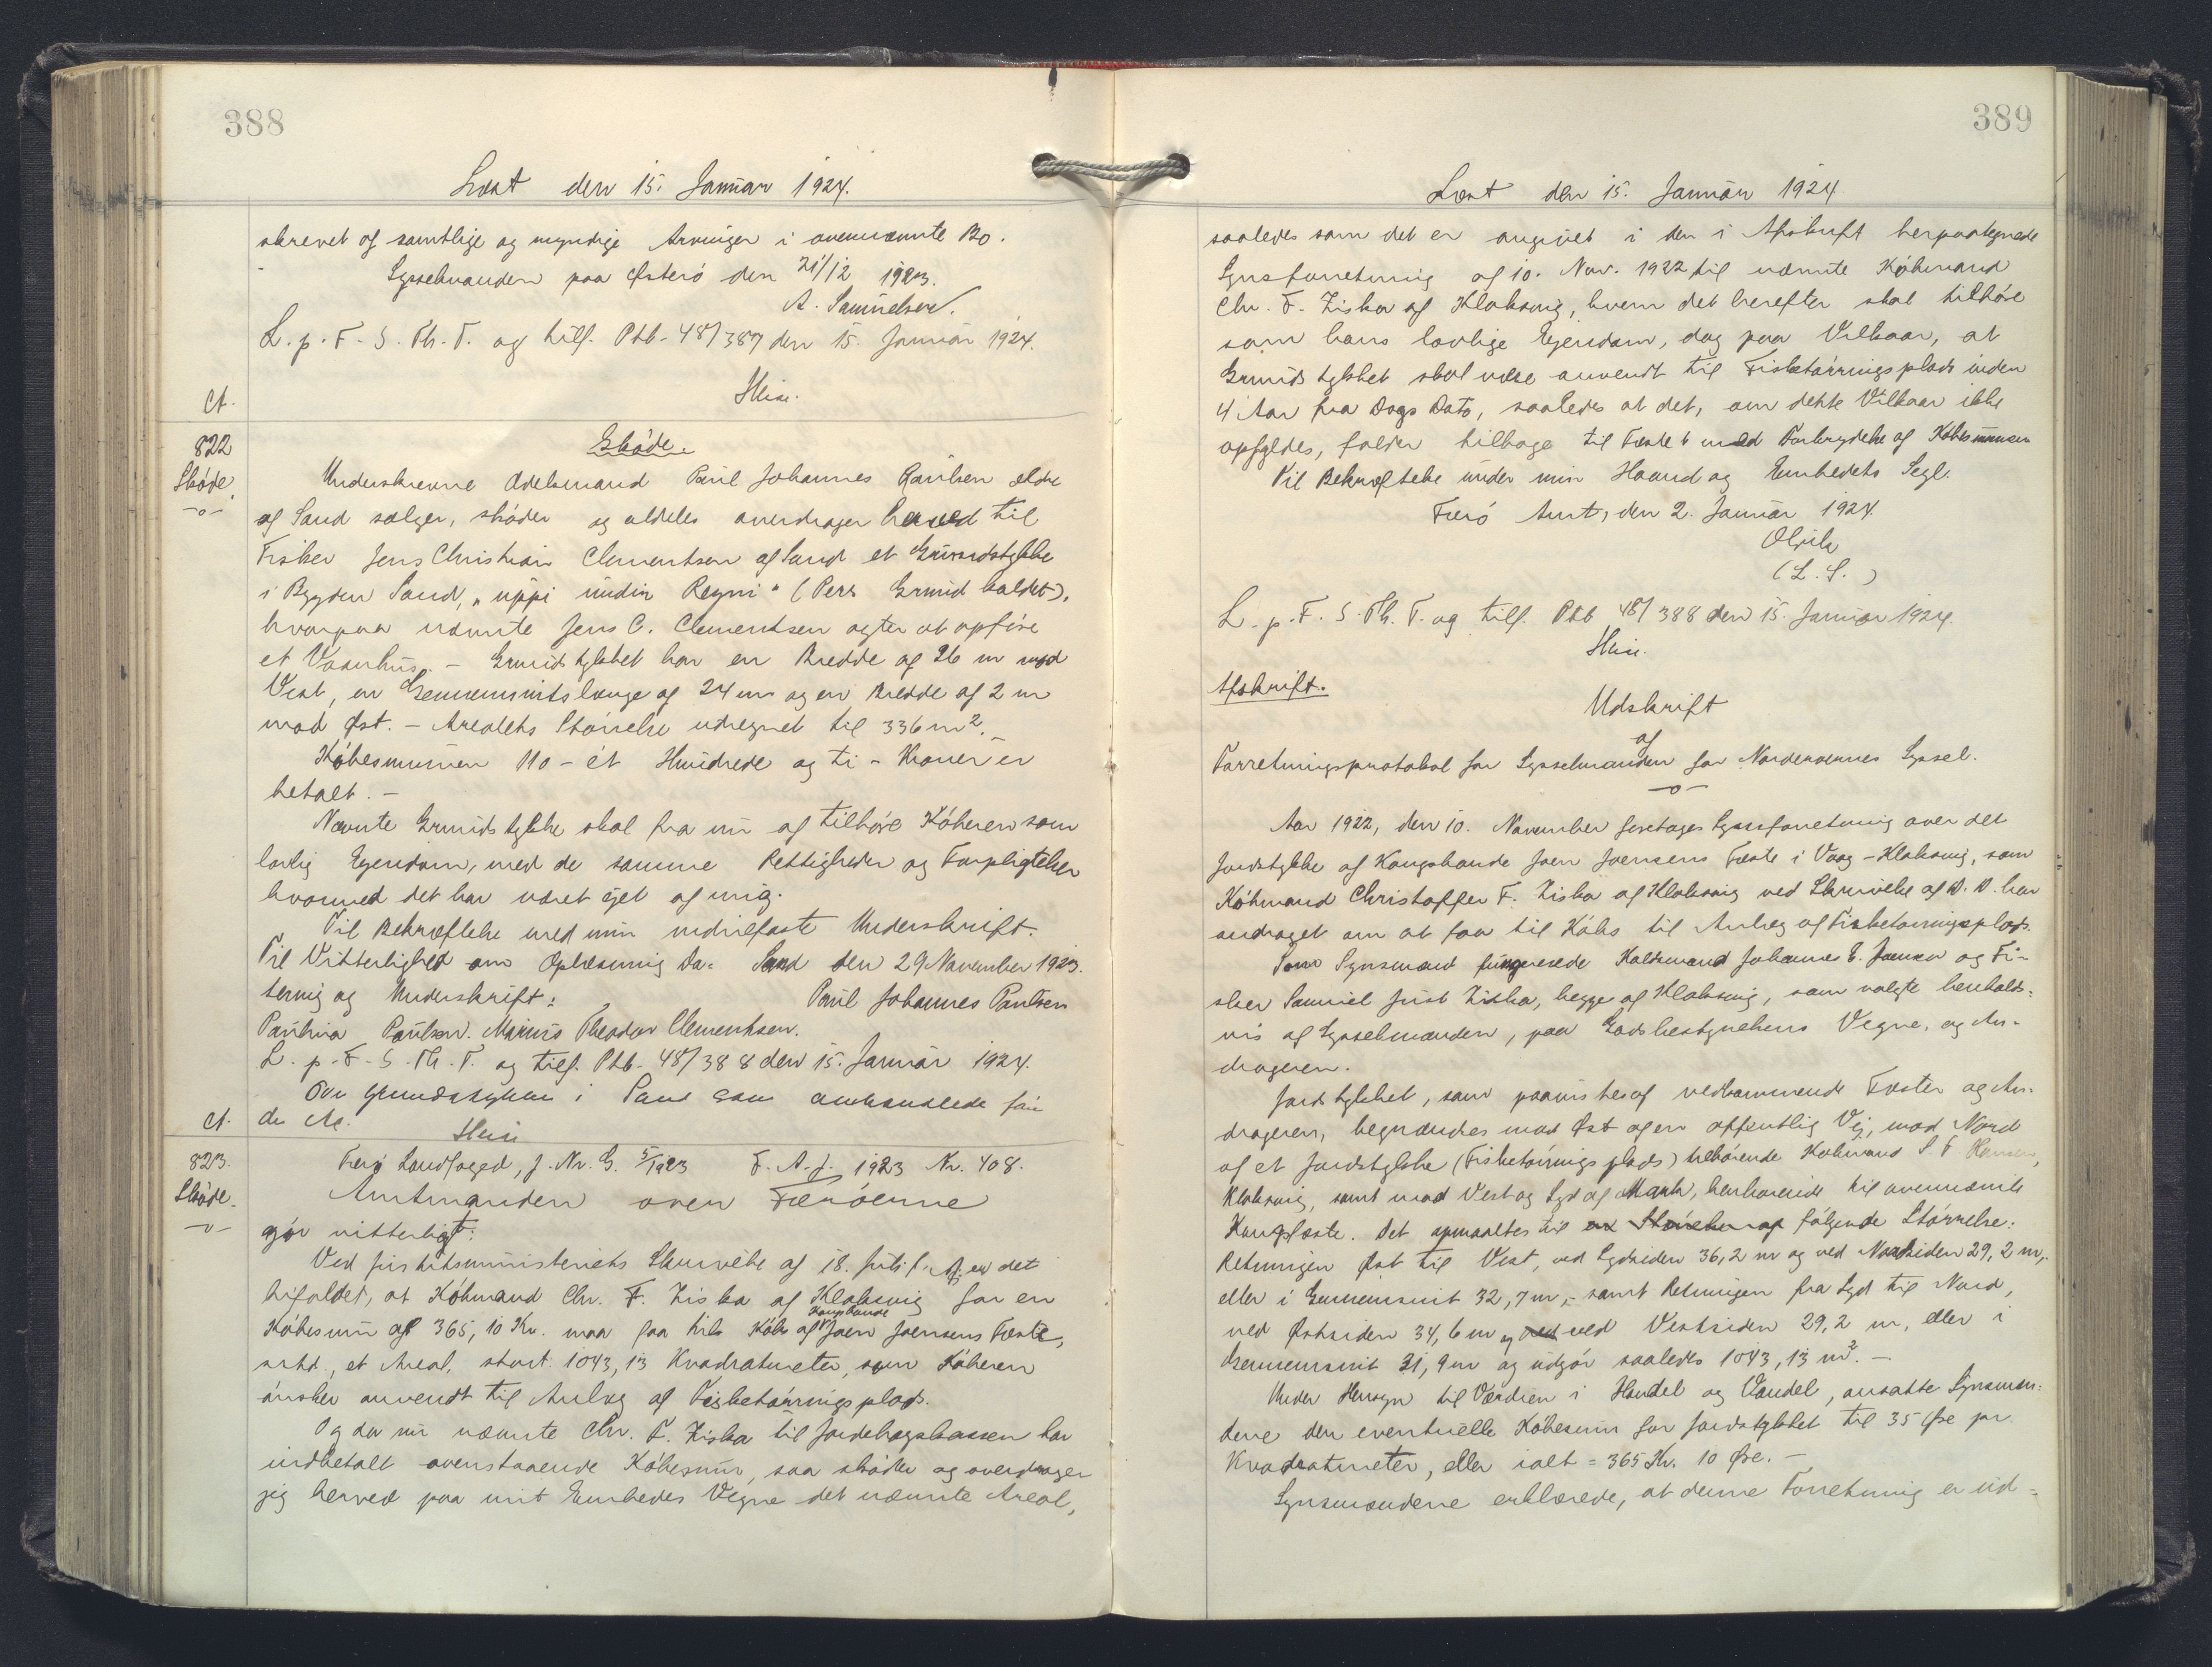 388
Læst den 15. Januar 1924.
skrevet af samtlige og myndige Arvinger i ovennævnte Bo.
Sysselmanden paa Østerö den 21/12 1923.
A. Samuelsen.
L. p. F. S. Th. T. og tilf. Ptb. 48/387 den 15. Januar 1924.
Ct.
822
Sköde.
-o-
Sköde.
Underskrevne Odelsmand Poul Johannes Paulsen ældre
af Sand sælger, sköder og aldeles overdrager herved til
Fisker Jens Christian Clementsen af Sand et Grundstykke
i Bygden Sand, "uppi undir Reyni" (Pers Grund kaldet),
hvorpaa nævnte Jens C. Clementsen agter at opföre
et Vaanhus. - Grundstykket har en Bredde af 26 m mod
Vest, en Gennemsnitslænge af 24 m og en Bredde af 2 m
mod Øst. - Arealets Störrelse udregnet til 336 m². -
Köbesummen 110 - ét Hundrede og ti - Kroner er
betalt. -
Nævnte Grundstykke skal fra nu af tilhöre Köberen som
lovlig Ejendom, med de samme Rettigheder og Forpligtelser
hvormed det har været ejet af mig.
Til Bekræftelse med min Underskrift.
Til Vitterlighed om Oplæsning Da- Sand den 29 November 1923.
tering og Underskrift: Poul Johannes Paulsen
Paulina Paulsen. Marius Theodor Clementsen.
L. p. F. S. Th. T. og tilf. Ptb. 48/388 den 15. Januar 1924.
Ovr Grundstykke i Sand som ommeldte
Ct.
823.
Sköde.
-o-
Færö Landfoged, J. Nr. G. 5/1923 F. A. J. 1923 Nr. 408.
Amtmanden over Færöerne
gör vitterligt:
Ved Justitsministeriets Skrivelse af 18. Juli f. A. er det
bifaldet, at Köbmand Chr. F. Ziska af Klaksvig for en
Köbesum af 365,10 Kr. maa faa til Köbs af Kongsbonde Joen Joensens Fæste,
sstd., et Areal, stort: 1043,13 Kvadratmeter, som Köberen
önsker anvendt til Anlæg af Fisketörringsplads.
Og da nu nævnte Chr. F. Ziska til Jordebogskassen har
indbetalt ovenstaaende Köbesum, saa sköder og overdrager
jeg herved paa mit Embedes Vegne det nævnte Areal,
389
Læst den 15. Januar 1924.
saaledes som det er angivet i den i Afskrift herpaategnede
Synsforretning af 10. Nov. 1922 til nævnte Köbmand
Chr. F. Ziska af Klaksvig, hvem det herefter skal tilhöre
som hans lovlige Ejendom, dog paa Vilkaar, at
Grundstykket skal være anvendt til Fisketörringsplads inden
4 Aar fra Dags Dato, saaledes at det, om dette Vilkaar ikke
opfyldes, falder tilbage til Fæstet med Forbrydelse af Köbesummen
Til Bekræftelse under min Haand og Embedets Segl.
Færö Amt, den 2. Januar 1924.
(L. S.)
L. p. F. S. Th. T. og tilf. Ptb 48/388 den 15. Januar 1924.
Afskrift.
Udskrift
af
Forretningsprotokol for Sysselmanden for Norderoernes Syssel.
-o-
Aar 1922, den 10. November foretoges Synsforretning over det
Jordstykke af Kongsbonde Joen Joensens Fæste i Vaag-Klaksvig, som
Köbmand Christoffer F. Ziska af Klaksvig ved Skrivelse af D. D. har
andraget om at faa til Köbs til Anlæg af Fisketörringsplads.
Som Synsmænd fungerede Johannes E. Joensen og Fi-
sker Samuel Just Ziska, begge af Klaksvig, som valgte henholds-
vis af Sysselmanden, paa Godsbestyrelsens Vegne, og An-
drageren.
Jordstykket, som paavistes af vedkommende Fæster og An-
drageren, begrændses mod Øst af en offentlig Vej, mod Nord
af et Jordstykke (Fisketörringsplads) tilhörende Köbmand S. F. Hansen,
Klaksvig, samt mod Vest og Syd af Mark, henhörende til ovennævnte
Kongsfæste. Det opmaaltes til en Störrelse af fölgende Störrelse:
Retningen Øst til Vest, ved Sydsiden 36,2 m og ved Nordsiden 29,2 m,
eller i Gennemsnit 32,7 m, - samt Retningen fra Syd til Nord,
ved Østsiden 34,6 m og ved ved Vestsiden 29,2 m, eller i
Gennemsnit 31,9 m og udgör saaledes 1043,13 m². -
Under Hensyn til Værdien i Handel og Vandel, ansatte Synsmæn-
dene den eventuelle Köbesum for Jordstykket til 35 Øre pr.
Kvadratmeter, eller ialt = 365 Kr. 10 Øre. -
Synsmændene erklærede, at denne Forretning er ud-